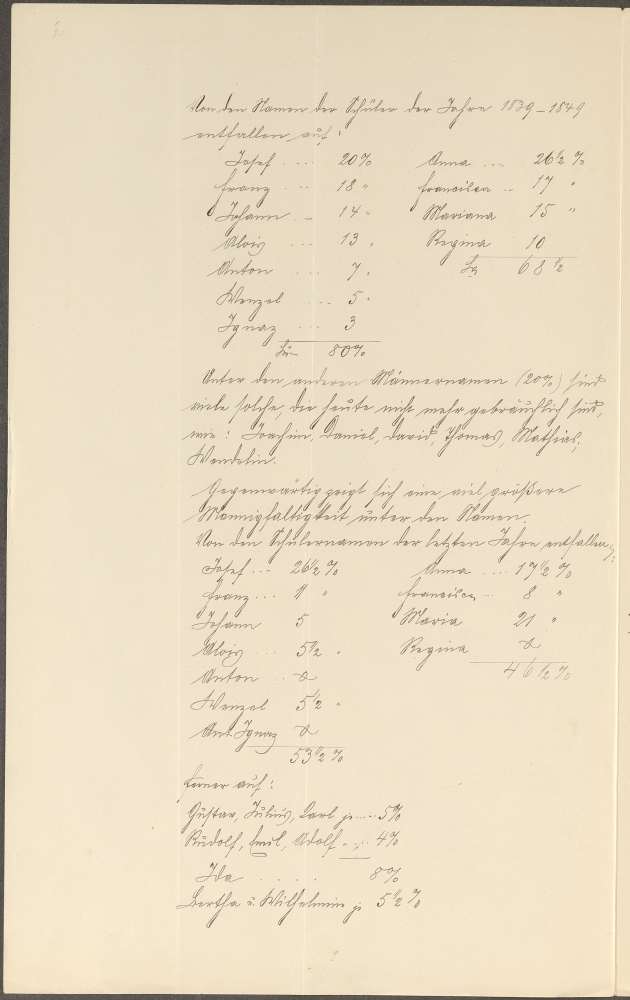 Von den Namen der Schüler der Jahre 1839–1849
entfallen auf:
Josef .... 20% Anna ... 26½ %
Franz ... 18 " Franziska .. 17 "
Johann .. 14 " Mariana 15 "
Alois ... 13 " Regina 10
Anton ... 7 " Sa 68½
Wenzel ... 5 "
Ignaz ... 3
Sa 80%
Unter den anderen Männernamen (20%) sind
viele solche, die heute nicht mehr gebräuchlich sind,
wie: Joachim, Daniel, David, Thomas, Mathias,
Wendelin.
Gegenwärtig zeigt sich eine viel größere
Mannigfaltigkeit unter den Namen.
Von den Schülernamen der letzten Jahre entfallen
Josef ... 26½ % Anna .... 17½ %
Franz ... 11 " Franziska .. 8 "
Johann 5 Maria 21 "
Alois ... 5½ " Regina 0
Anton .. 0 46½ %
Wenzel 5½ "
Ignaz 0
53½ %
Ferner auf:
Gustav, Julius, Carl je .... 5%
Rudolf, Emil, Adolf " .. 4%
Ida ..... 8%
Bertha u. Wilhelmin je 5½ %